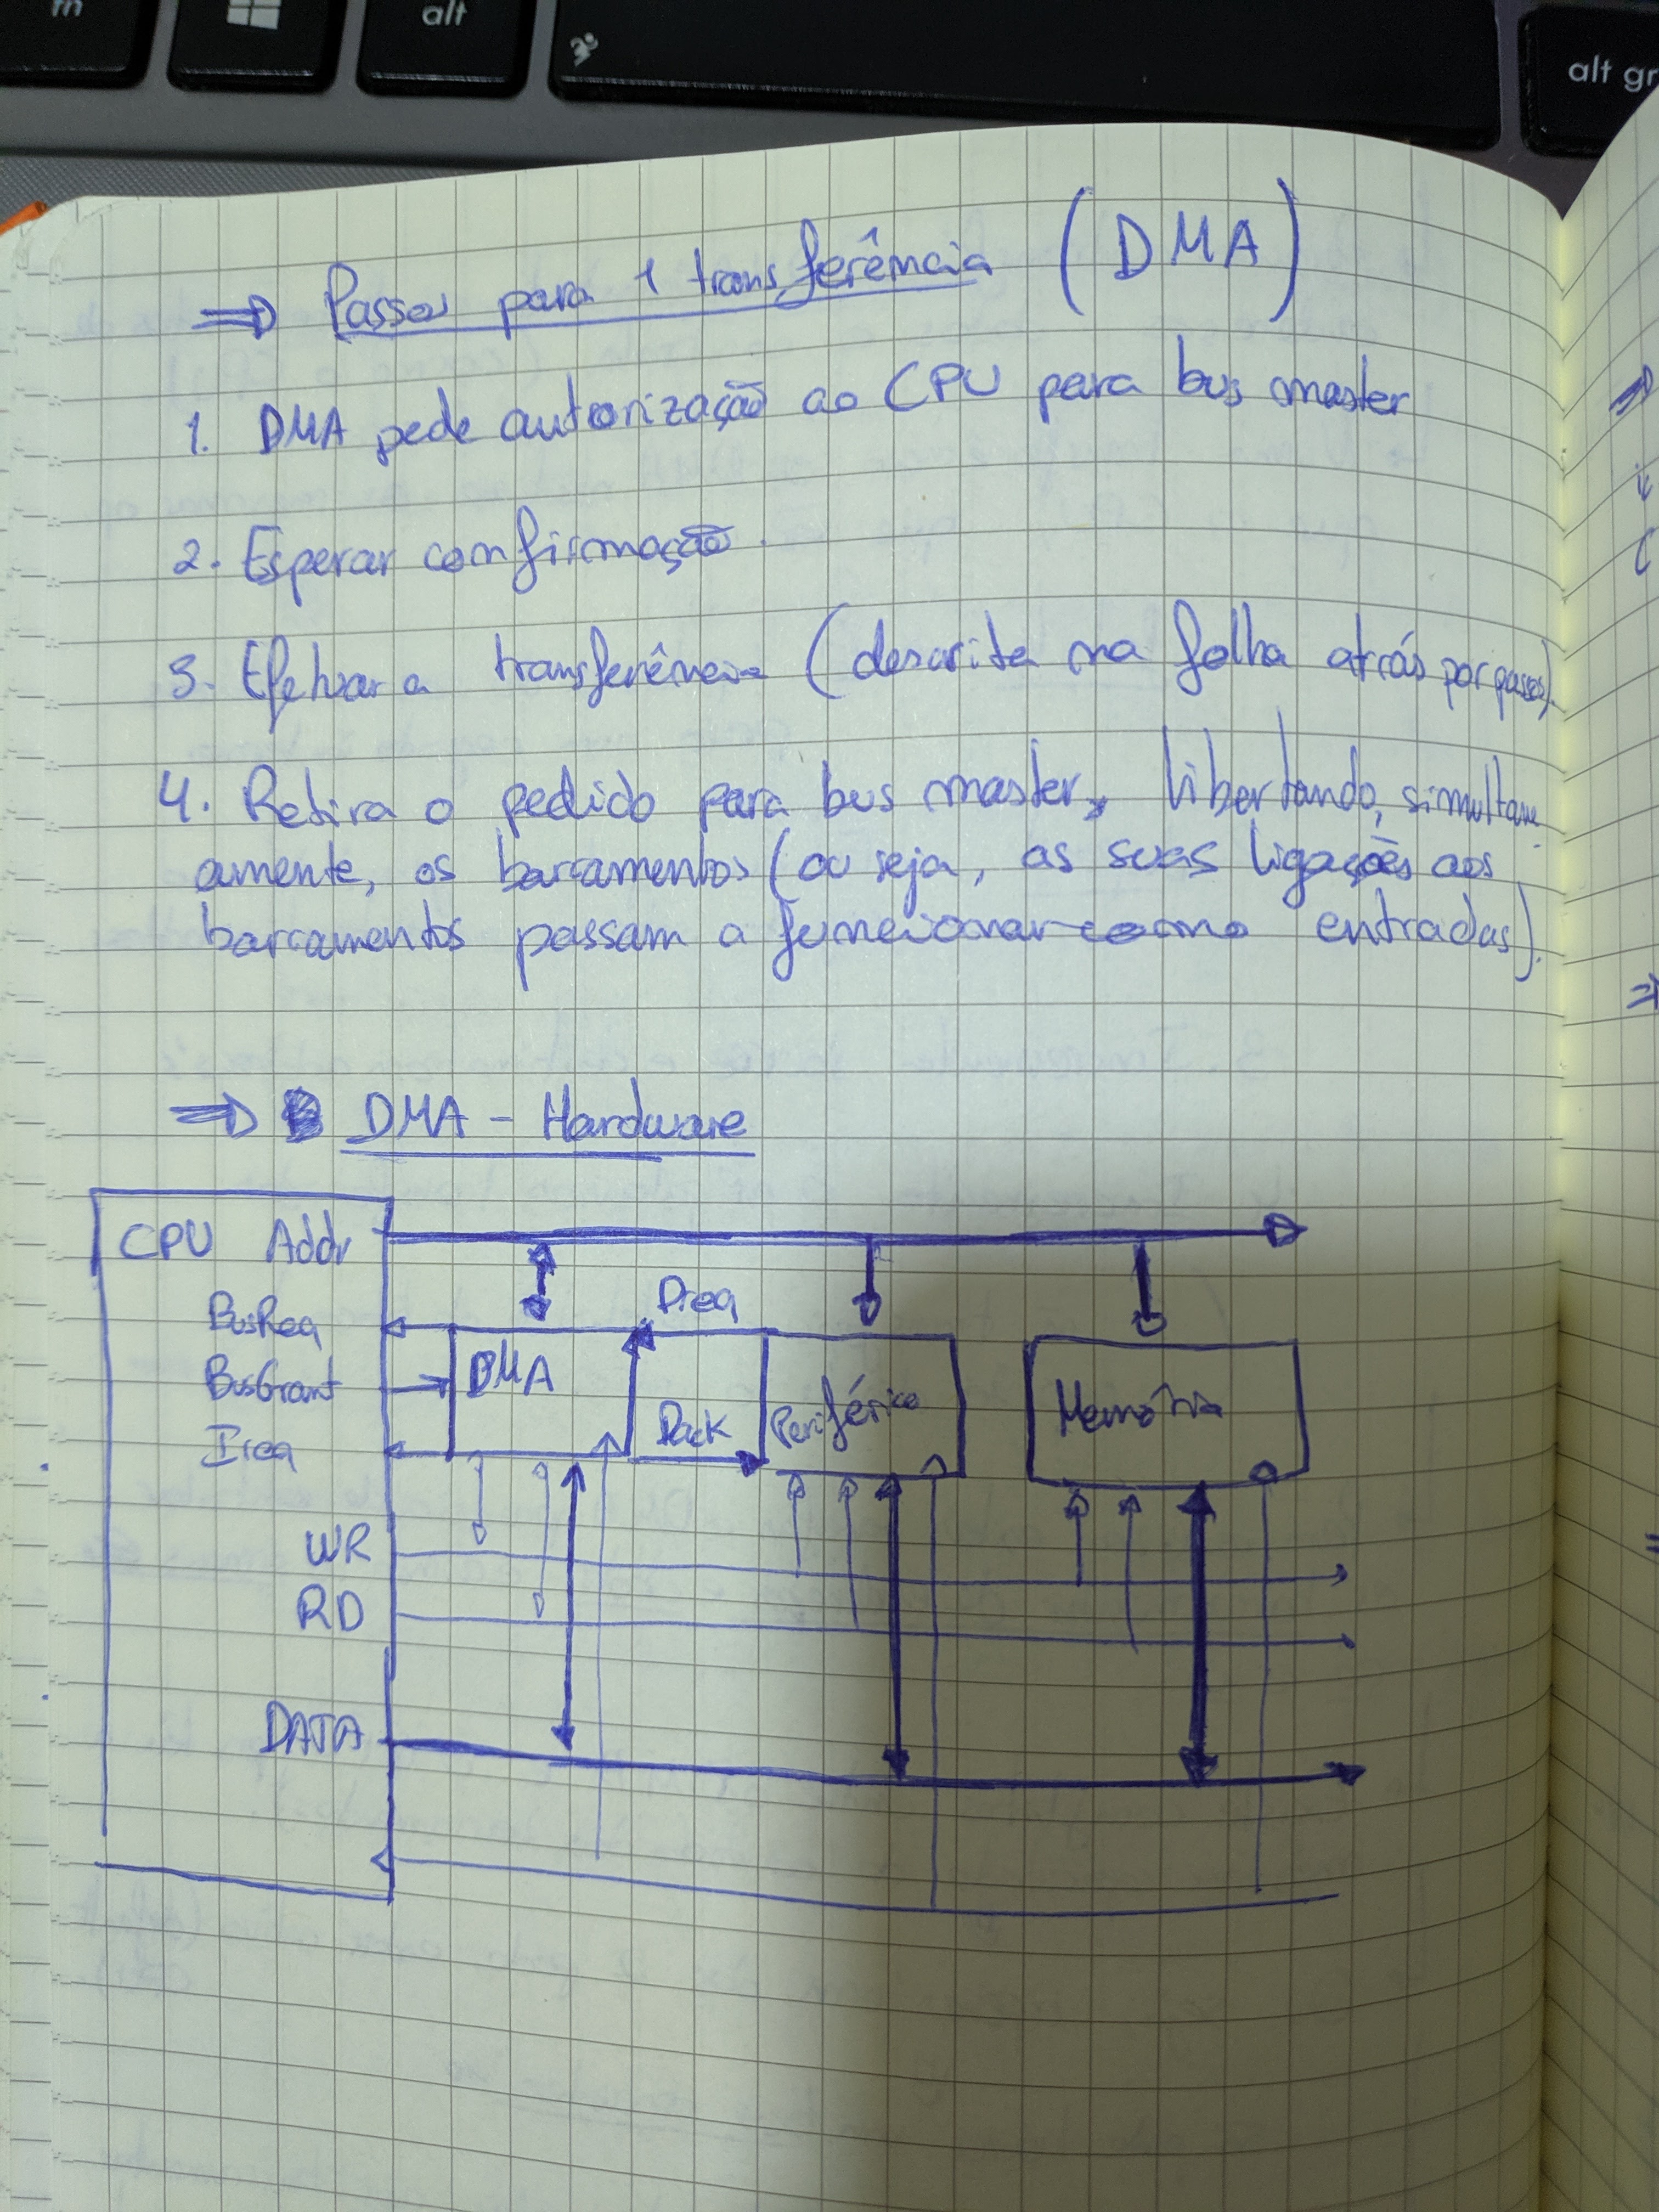 fn
alt
alt gr
⇒ Passos para 1 transferência (DMA)
1. DMA pede autorização ao CPU para bus master
2. Esperar confirmação.
3. Efetuar a transferência (descrita na folha atrás por passos).
4. Retira o pedido para bus master, libertando, simultane
amente, os barramentos (ou seja, as suas ligações aos
barramentos passam a funcionar como entradas).
⇒ DMA - Hardware
CPU Addr
Dreq
BusReq
BusGrant
DMA
Dack
Periférico
Memória
Ireq
WR
RD
DATA